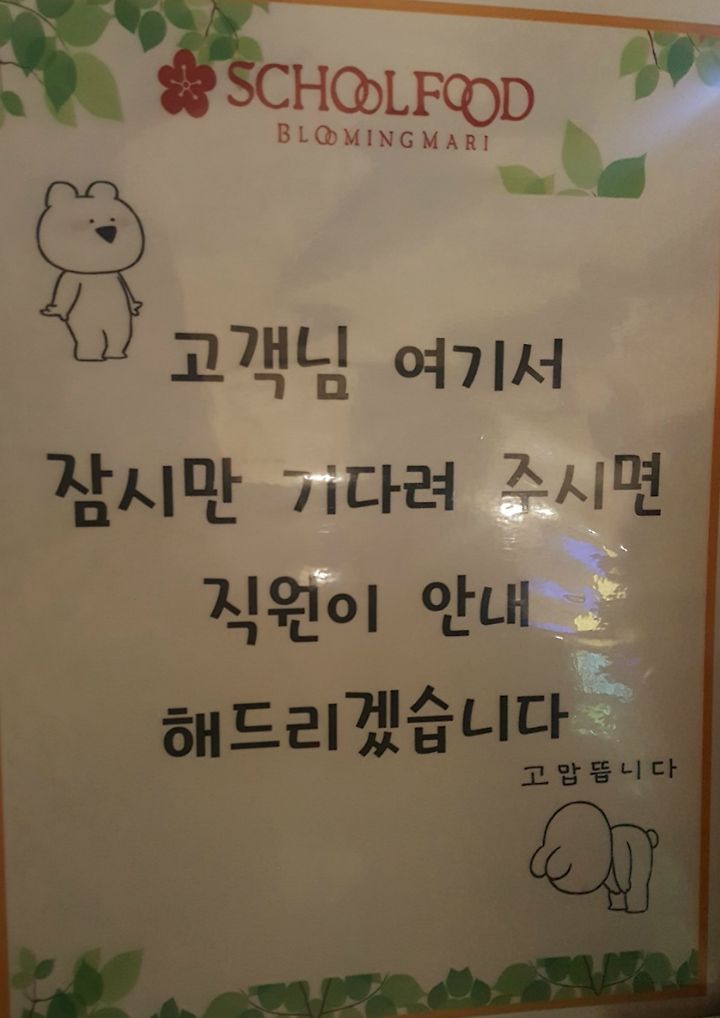 SCHOOLFOOD
BLOOMINGMARI
고객님 여기서
잠시만 기다려 주시면
직원이 안내
해드리겠습니다
고맙뜹니다